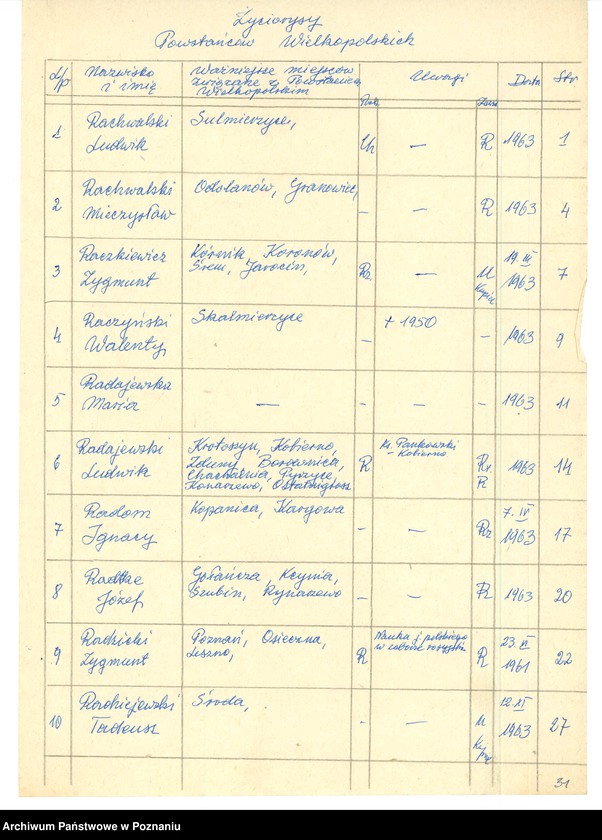 Życiorysy
Powstańców Wielkopolskich
L/p Nazwisko i imię Ważniejsze miejscow. związane z Powstaniem Wielkopolskim Uwagi Data Str
1 Rachwalski Ludwik Sulmierzyce, — R 1963 1
2 Rachwalski Mieczysław Odolanów, Granowiec, – — R 1963 4
3 Raczkiewicz Zygmunt Kórnik, Koronów, Śrem, Jarocin, — M Kopie 19.III 1963 7
4 Raczyński Walenty Skalmierzyce – + 1950 – 1963 9
5 Radajewska Maria — – — – 1963 11
6 Radajewski Ludwik Krotoszyn, Kobierno, Zduny, Borownica, Chachalnia, Konarzewo, R Ks. Pankowski – Kobierno R 1963 14
7 Radom Ignacy Kopanica, Kargowa – — 7.IV 1963 17
8 Radtke Józef Gołańcza, Kcynia, Szubin, Rynarzewo – — R 1963 20
9 Radzicki Zygmunt Poznań, Osieczna, Leszno, R Nauka j. polskiego w zaborze rosyjskim R 1961 22
10 Radziejewski Tadeusz Środa, – — M 1963 27
31
Archiwum Państwowe w Poznaniu